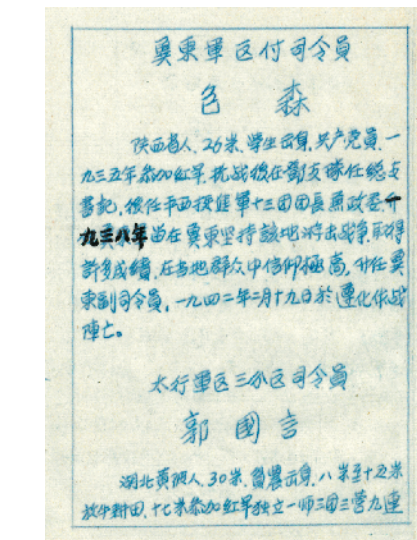 冀東軍区付司令員
包 森
陕西省人、26岁、学生出身、共产党員、一
九三五年参加红军、抗战後在 支隊任總支
書記、後任平西挺進軍十三团团長兼政委、
九三八年 在冀東坚持該地游击战争、取得
許多成績、在当地群众中信仰極高、升任冀
東副司令員、一九四二年二月十九日於遵化作战
陣亡。
太行軍区三分区司令員
郭 國 言
湖北黄陂人、30岁、貧農出身、八岁至十五岁
放牛耕田、十七岁参加红军独立一师三团三营九連